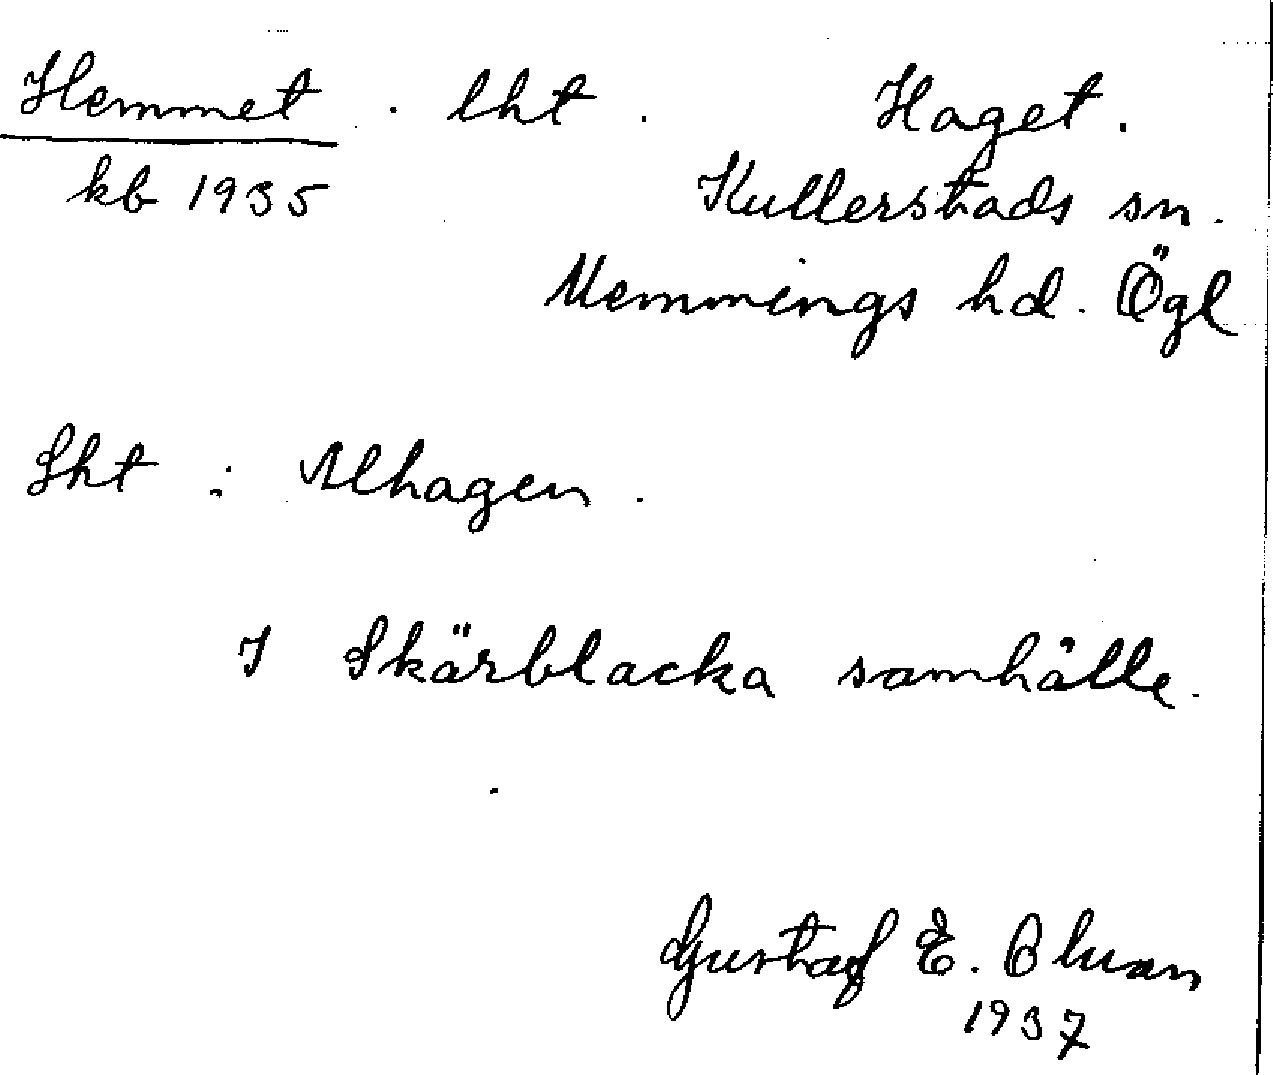 Hemmet. lht. Haget.
kb 1935 Kullerstads sn.
Memmings hd. Ögl
Sht: Alhagen.
I Skärblacka samhälle.
Gustaf E.
1937